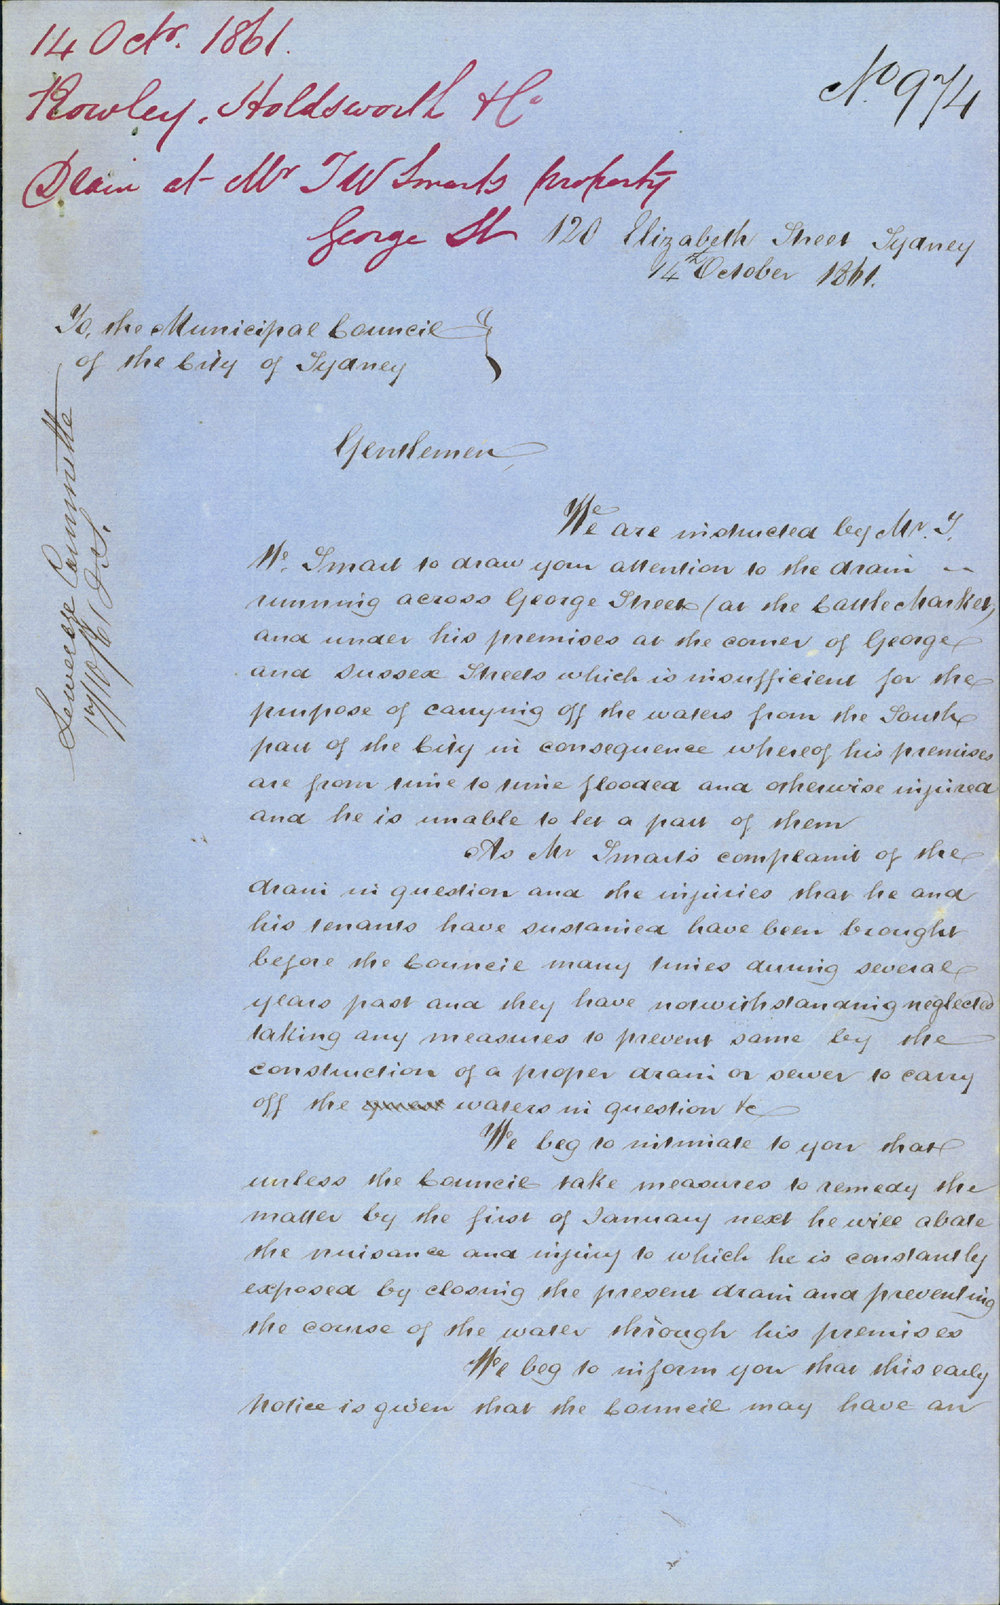 14 Octr. 1861.
No 974
Rowley, Holdsworth & Co
Drain at Mr T W Smarts property
George St
120 Elizabeth Street Sydney
14th October 1861.
To, the Municipal Council
of the City of Sydney
Gentlemen
We are instructed by Mr. T.
W. Smart to draw your attention to the drain
running across George Street (at the Cattle Market)
and under his premises at the corner of George
and Sussex Streets which is insufficient for the
purpose of carrying off the waters from the South
part of the City in consequence whereof his premises
are from time to time flooded and otherwise injured
and he is unable to let a part of them
As Mr Smart's complaint of the
drain in question and the injuries that he and
his tenants have sustained have been brought
before the Council many times during several
years past and they have notwithstanding neglected
taking any measures to prevent same by the
construction of a proper drain or sewer to carry
off the waters in question &c
We beg to intimate to you that
unless the Council take measures to remedy the
matter by the first of January next he will abate
the nuisance and injury to which he is constantly
exposed by closing the present drain and preventing
the course of the water through his premises
We beg to inform you that this early
Notice is given that the Council may have an
Sewerage Committee
17/10/61 J.S.